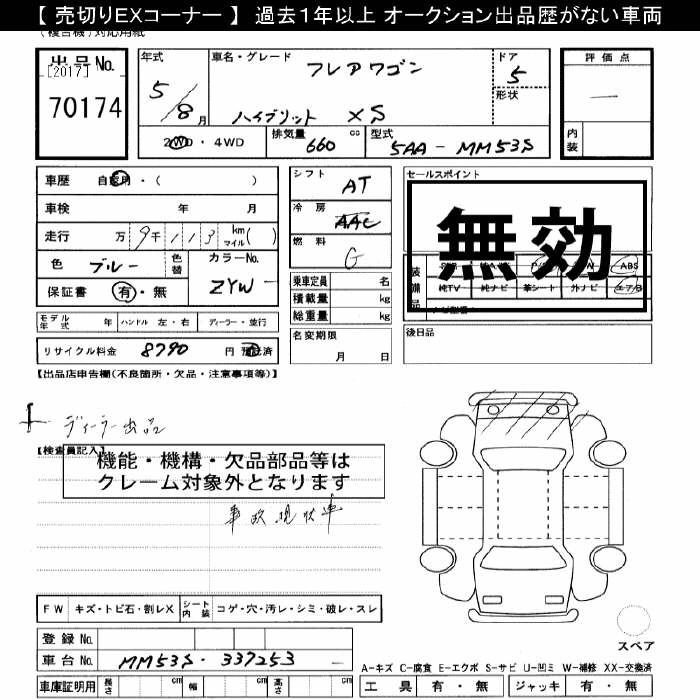 【 売切りEXコーナー 】 過去１年以上 オークション出品歴がない車両
(複合機)対応用紙
出品No.
[2017]
70174
年式
5/8月
車名・グレード
フレアワゴン
ハイブリット XS
ドア
5
形状
評価点
—
内装
2WD・4WD
排気量 660 cc
型式 5AA - MM53S
車歴 自家用・( )
車検 年 月
走行 万 9千113 km マイル( )
色 ブルー
色替
カラーNo. ZYW
保証書 有・無
シフト AT
冷房 AAC
燃料 G
乗車定員 名
積載量 kg
総重量 kg
名変期限 月 日
セールスポイント
無効
装備品
ABS
純TV 純ナビ 革シート 外ナビ エアB
後日品
モデル年式 年 ハンドル 左・右 ディーラー・並行
リサイクル料金 8790 円 預託済
【出品店申告欄(不良箇所・欠品・注意事項等)】
ディーラー出品
【検査員記入】
機能・機構・欠品部品等は
クレーム対象外となります
事故現状車
FW キズ・トビ石・割レX シート内装 コゲ・穴・汚レ・シミ・破レ・スレ
登録No.
車台No. MM53S-337253
スペア
A-キズ C-腐食 E-エクボ S-サビ U-凹ミ W-補修 XX-交換済
車庫証明用 長さ cm 幅 cm 高さ cm
工具 有・無 ジャッキ 有・無